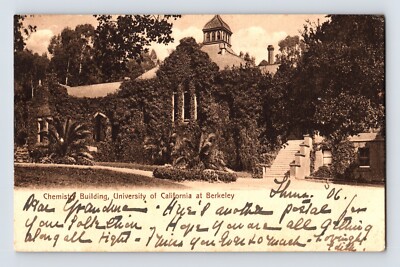 Chemistry Building, University of California at Berkeley
Thurs. '06.
Dear Grandma - Here's another postal for
your collection - Hope you are all getting
along all right - Times you ever so much - Lovingly
Edith.